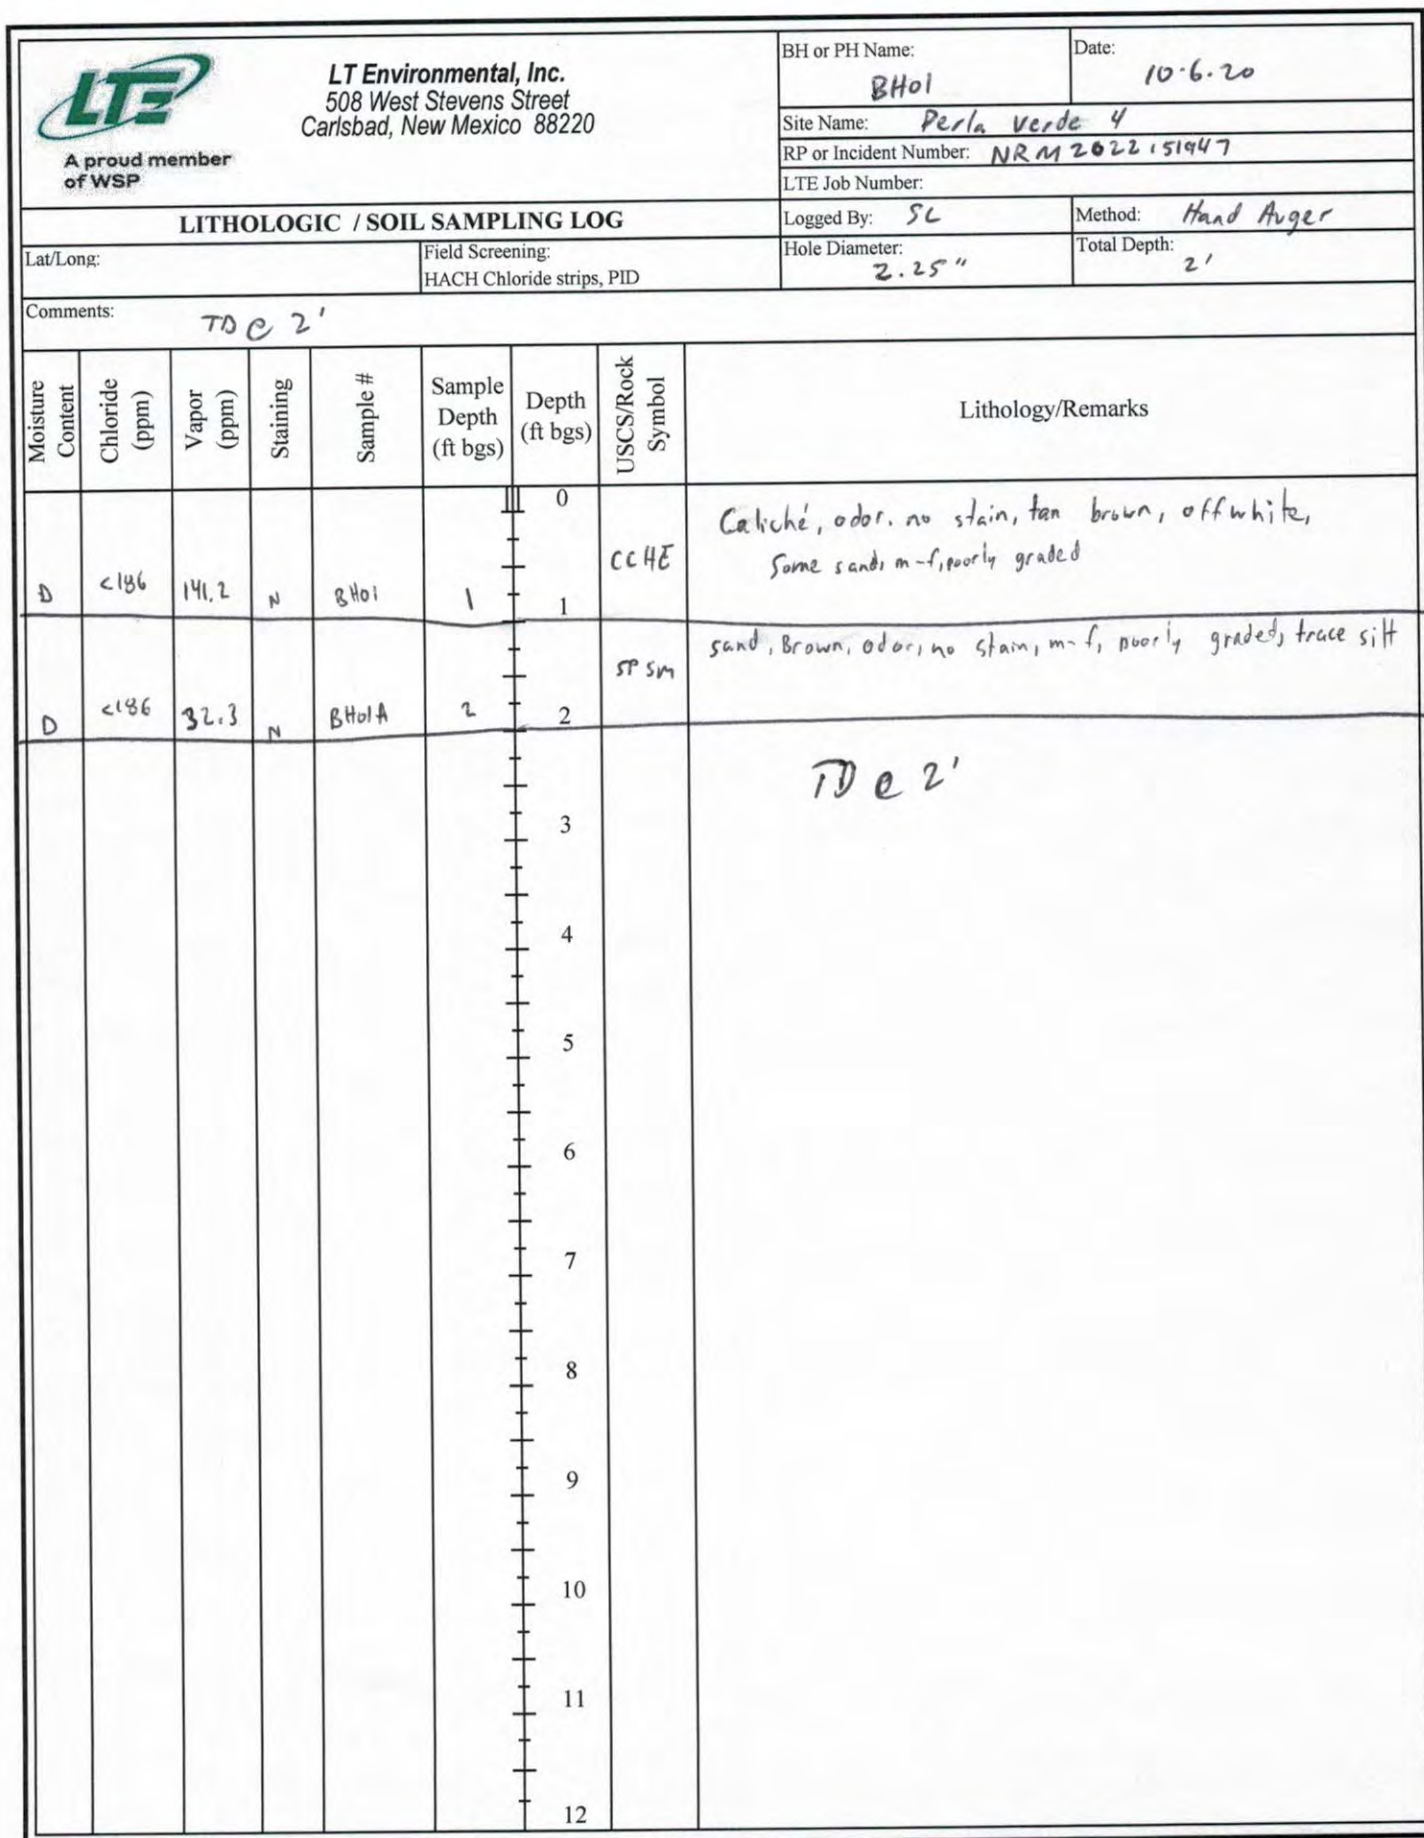 LTE
A proud member
of WSP
LT Environmental, Inc.
508 West Stevens Street
Carlsbad, New Mexico 88220
BH or PH Name: BH01
Date: 10.6.20
Site Name: Perla Verde 4
RP or Incident Number: NRM2022151947
LTE Job Number:
LITHOLOGIC / SOIL SAMPLING LOG
Logged By: SL
Method: Hand Auger
Lat/Long:
Field Screening:
HACH Chloride strips, PID
Hole Diameter: 2.25"
Total Depth: 2'
Comments: TD @ 2'
Moisture Content
Chloride (ppm)
Vapor (ppm)
Staining
Sample #
Sample Depth (ft bgs)
Depth (ft bgs)
USCS/Rock Symbol
Lithology/Remarks
0
Caliché, odor, no stain, tan brown, off white,
CCHE
Some sand, m-f, poorly graded
D <186 141.2 N BH01 1 1
sand, Brown, odor, no stain, m-f, poorly graded, trace silt
SP SM
D <186 32.3 N BH01A 2 2
TD @ 2'
3
4
5
6
7
8
9
10
11
12